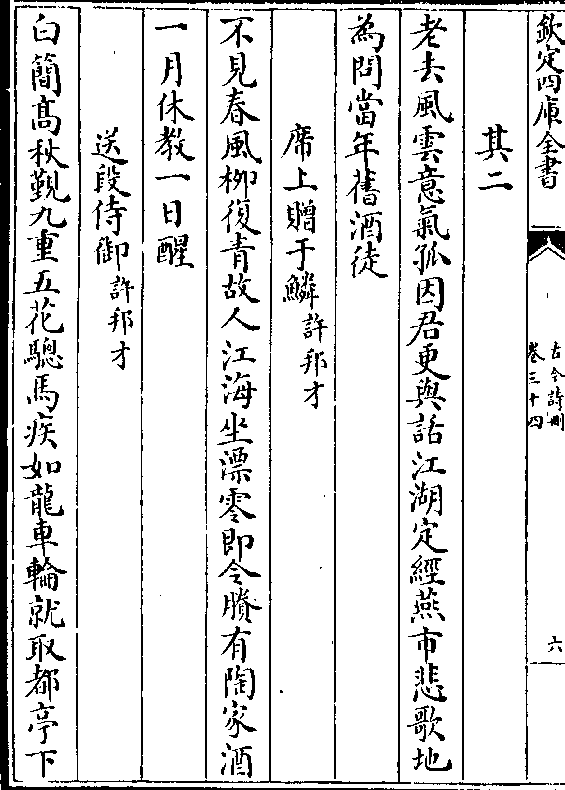 欽定四庫全書
古今詩刪
卷三十四
六
其二
老去風雲意氣孤因君更與話江湖定經燕市悲歌地
為問當年舊酒徒
席上贈于鱗許邦才
不見春風柳復青故人江海坐漂零即今賸有陶家酒
一月休教一日醒
送段侍御許邦才
白簡高秋覲九重五花驄馬疾如龍車輪就取都亭下